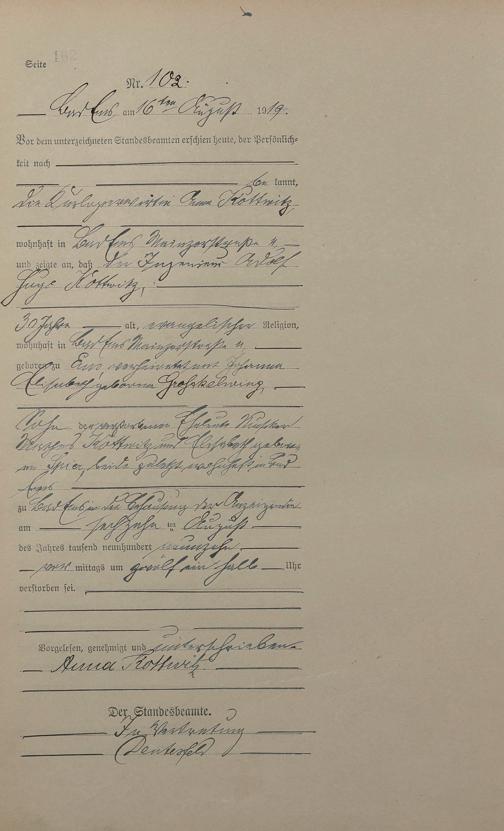 Seite 162
Nr. 102.
Bad Ems am 16ten August 1919.
Vor dem unterzeichneten Standesbeamten erschien heute, der Persönlich-
keit nach
be kannt,
die Anna Kottwitz
wohnhaft in Bad Ems Mainzerstraße
und zeigte an, daß der Ingenieur Adolf
Hugo Kottwitz,
30 Jahre alt, evangelischer Religion,
wohnhaft in Bad Ems Mainzerstraße
geboren zu Ems verheiratet mit Johanna
Elisabeth geborene
Sohn der verstorbenen Eheleute
Kottwitz und Elisabeth gebore-
ne beide zuletzt wohnhaft in Bad
Ems
zu Bad Ems in der Behausung der Anzeigenden
am sechzehnten August
des Jahres tausend neunhundert neunzehn
vor mittags um zwölf ein halb Uhr
verstorben sei.
Vorgelesen, genehmigt und unterschrieben
Anna Kottwitz
Der Standesbeamte.
In Vertretung